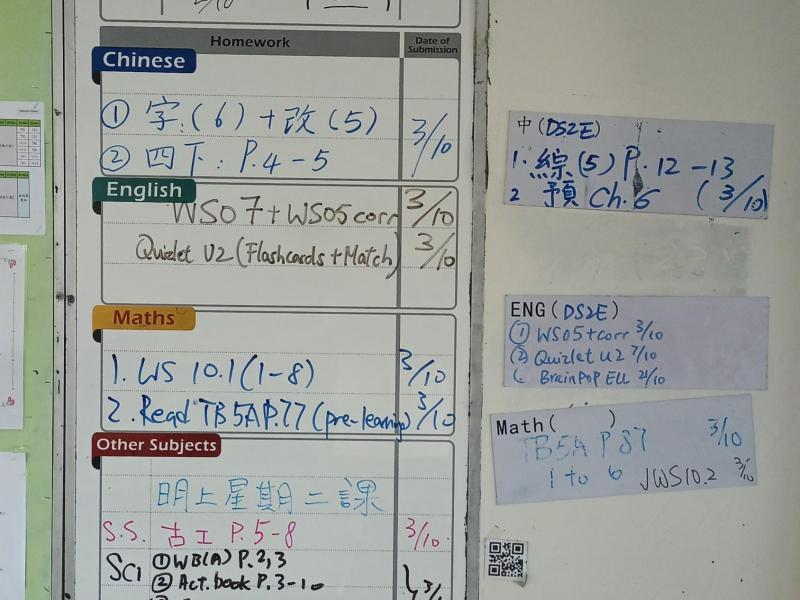 Homework
Date of Submission
Chinese
① 字:(6)+改(5) 3/10
② 四下: P.4-5
English
WS07+WS05corr 3/10
Quizlet U2 (Flashcards+Match) 3/10
Maths
1. WS 10.1(1-8) 3/10
2. Read TB5AP.77 (pre-learning) 3/10
Other Subjects
明上星期二課
S.S. 古工 P.5-8 3/10
Sci ①WB(A) P.2,3
②Act. book P.3-10
中(DS2E)
1. 綜(5)P.12-13
2 預 Ch.6 (3/10)
ENG(DS2E)
① WS05+corr 3/10
② Quizlet U2 7/10
BrainPOP ELL 21/10
Math( )
TB5A P.87 3/10
1 to 6 JWS10.2